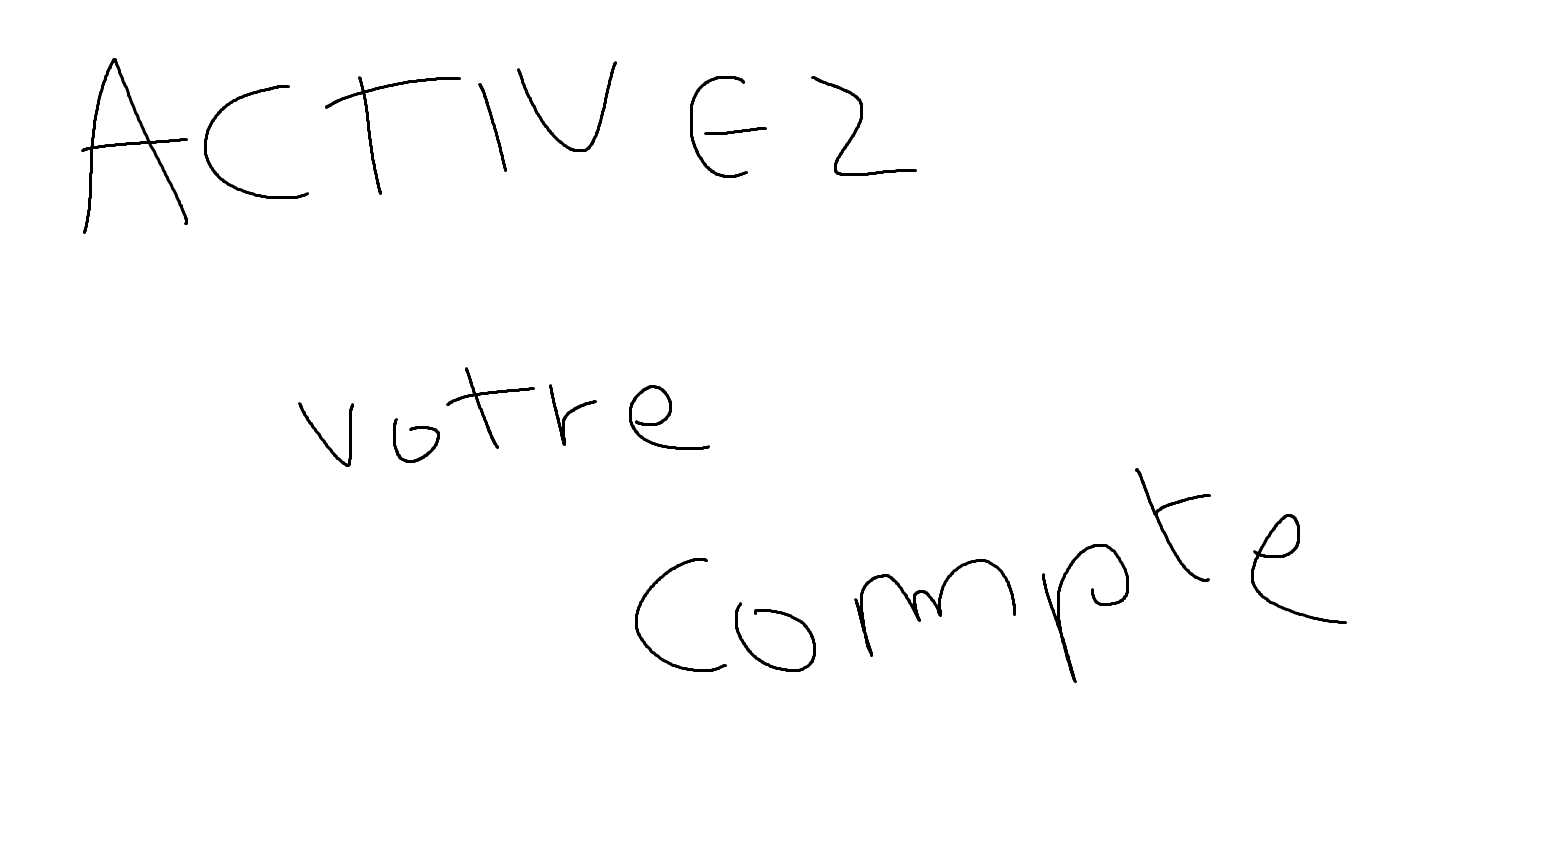 ACTIVEZ
votre
compte